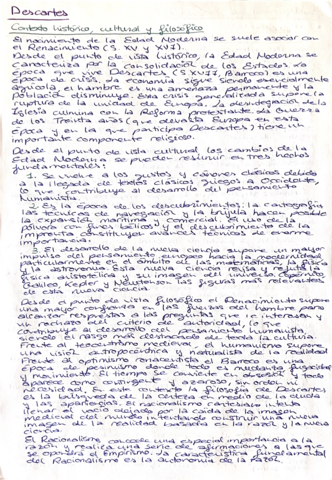 Descartes
Contexto histórico, cultural y filosófico
El nacimiento de la Edad Moderna se suele asociar con
el Renacimiento (S. XV y XVI).
Desde el punto de vista histórico, la Edad Moderna se
caracteriza por la consolidación de los Estados. La
época que vive Descartes (S XVII, Barroco) es una
época de crisis, la economía sigue siendo esencialmente
agrícola, el hambre es una amenaza permanente y la
población disminuye. Esta crisis generalizada supone la
ruptura de la unidad de Europa. La desintegración de la
Iglesia culmina con la Reforma protestante. La Guerra
de los Treinta años (que devasta Europa en esta
época y en la que participa Descartes) tiene un
importante componente religioso.
Desde el punto de vista cultural los cambios de la
Edad Moderna se pueden resumir en tres hechos
fundamentales:
1. Se vuelve a los gustos y cánones clásicos debido
a la llegada de textos clásicos griegos a Occidente,
lo que contribuye al desarrollo del pensamiento
humanista.
2. Es la época de los descubrimientos: la cartografía
las técnicas de navegación y la brújula hacen posible
la expansión marítima y comercial. El uso de la
pólvora con fines bélicos y el descubrimiento de la
imprenta constituyen avances técnicos de enorme
importancia.
3. El desarrollo de la nueva ciencia supone un mayor
impulso del pensamiento europeo hacia la modernidad
particularmente en el ámbito de las matemáticas, la física
y la astronomía. Esta nueva ciencia revisa y refuta la
física aristotélica y su imagen del universo. Copérnico
Galileo, Kepler y Newton son las figuras más relevantes
de esta nueva ciencia.
Desde el punto de vista filosófico el Renacimiento supone
una mayor confianza en las fuerzas del hombre para
alcanzar respuestas a las preguntas que le interesan y
un rechazo del criterio de autoridad, lo que
contribuye al desarrollo del pensamiento humanista,
siendo el rasgo más destacado de toda la cultura.
Frente al teocentrismo medieval, el humanismo supone
una visión antropocéntrica y naturalista de la realidad
Frente al optimismo renacentista el Barroco es una
época de pesimismo donde todo es mudanza, fugacidad
y movimiento. El tiempo se convierte en obsesión y todo
aparece como contingente y azaroso, sin orden ni
necesidad. En este contexto la filosofía de Descartes
es la búsqueda de la certeza en medio de la duda
y las apariencias. El racionalismo cartesiano intenta
llenar el vacío dejado por la caída de la imagen
medieval del mundo intentando construir una nueva
imagen de la realidad basada en la razón y la nueva
ciencia.
El Racionalismo concede una especial importancia a la
razón y realiza una serie de afirmaciones a las que
se opondrá el Empirismo. La característica fundamental
del Racionalismo es la autonomía de la razón